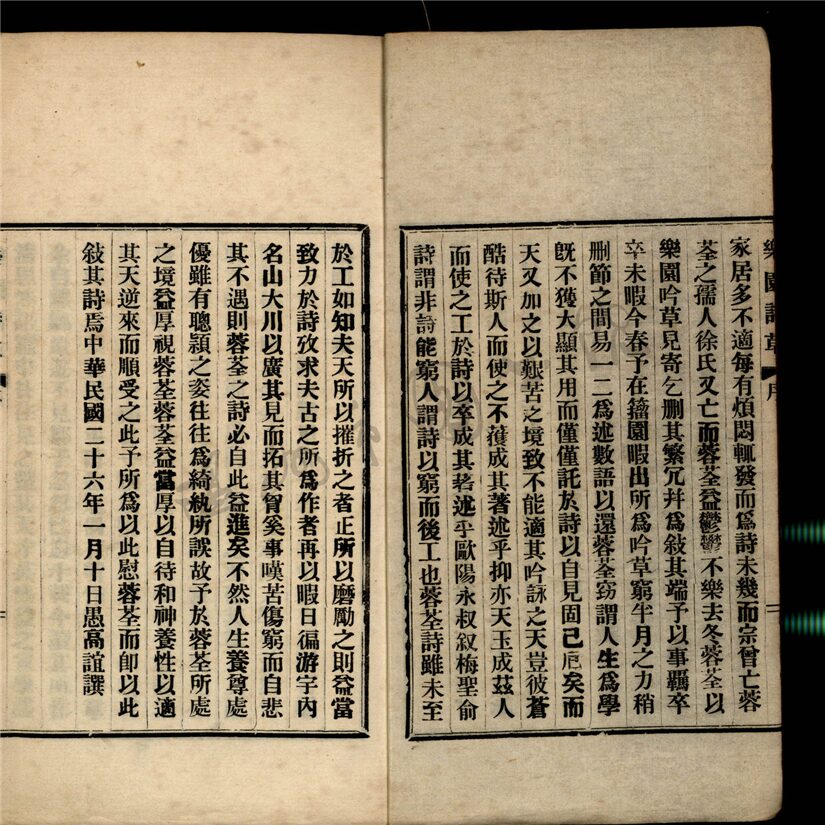 樂園詩草 序
家居多不適每有煩悶輒發而爲詩未幾而宗曾亡蓉
荃之孺人徐氏又亡而蓉荃益鬱鬱不樂去冬蓉荃以
樂園吟草見寄乞删其繁冗幷爲敍其端予以事羈卒
卒未暇今春予在籀園暇出所爲吟草窮半月之力稍
删節之間易一二爲述數語以還蓉荃窃謂人生爲學
旣不獲大顯其用而僅僅託於詩以自見固已戹矣而
天又加之以艱苦之境致不能適其吟詠之天豈彼蒼
酷待斯人而使之不獲成其著述乎抑亦天玉成茲人
而使之工於詩以卒成其著述乎歐陽永叔叙梅聖俞
詩謂非詩能窮人謂詩以窮而後工也蓉荃詩雖未至
於工如知夫天所以摧折之者正所以磨勵之則益當
致力於詩攷求夫古之所爲作者再以暇日徧游宇内
名山大川以廣其見而拓其胷奚事嘆苦傷窮而自悲
其不遇則蓉荃之詩必自此益進矣不然人生養尊處
優雖有聰穎之姿往往爲綺紈所誤故予於蓉荃所處
之境益厚視蓉荃蓉荃益當厚以自待和神養性以適
其天逆來而順受之此予所爲以此慰蓉荃而卽以此
敍其詩焉中華民國二十六年一月十日愚高誼譔